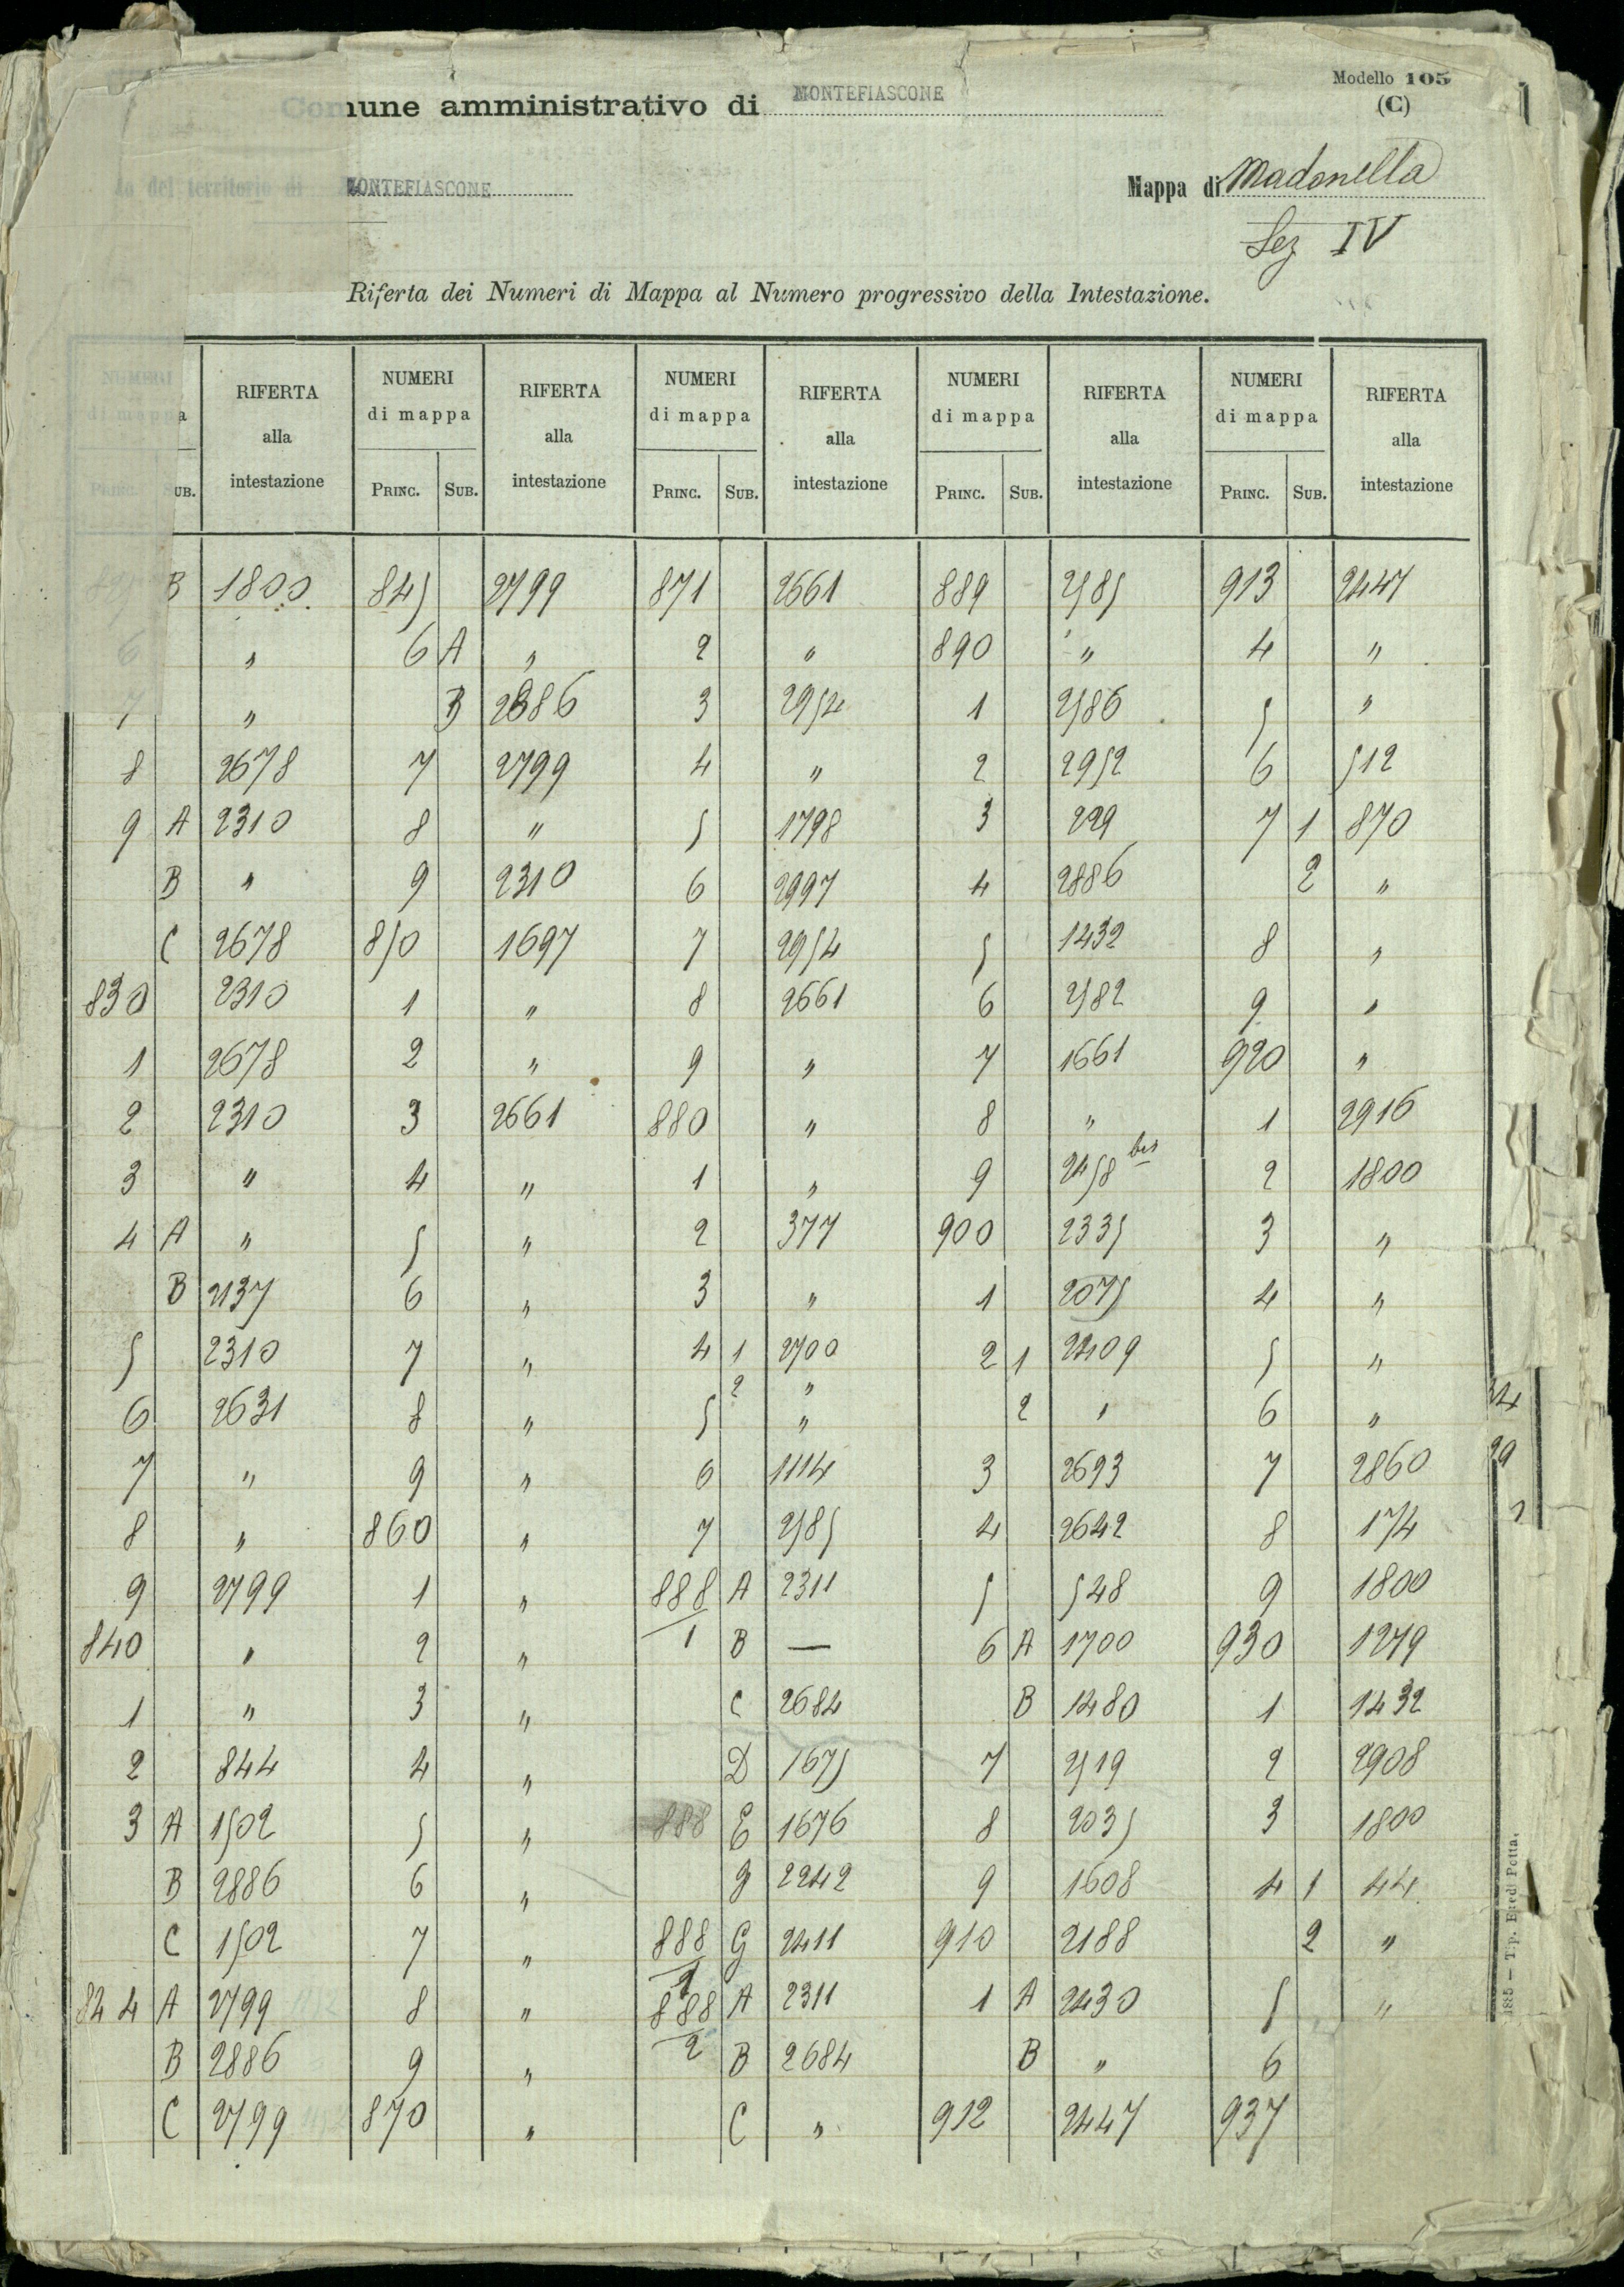 Modello 105
(C)
Comune amministrativo di MONTEFIASCONE
del territorio di MONTEFIASCONE
Mappa di Madonella
Sez IV
Riferta dei Numeri di Mappa al Numero progressivo della Intestazione.
NUMERI di mappa RIFERTA alla intestazione NUMERI di mappa RIFERTA alla intestazione NUMERI di mappa RIFERTA alla intestazione NUMERI di mappa RIFERTA alla intestazione NUMERI di mappa RIFERTA alla intestazione
PRINC. SUB. PRINC. SUB. PRINC. SUB. PRINC. SUB. PRINC. SUB.
B 1800 845 2799 871 2661 889 2585 913 2447
6 " 6 A " 2 " 890 " 4 "
7 " B 2886 3 2954 1 2586 5 "
8 2678 7 2799 4 " 2 2952 6 512
9 A 2310 8 " 5 1798 3 299 7 1 870
B " 9 2310 6 2997 4 2886 2 "
C 2678 850 1697 7 2954 5 1432 8 "
830 2310 1 " 8 2661 6 2582 9 "
1 2678 2 " 9 " 7 1661 920 "
2 2310 3 2661 880 " 8 " 1 2916
3 " 4 " 1 " 9 2458 bis 2 1800
4 A " 5 " 2 377 900 2335 3 "
B 2137 6 " 3 " 1 2075 4 "
5 2310 7 " 4 1 2700 2 1 2409 5 "
2 "
6 2631 8 " 5 " 2 " 6 "
7 " 9 " 6 1114 3 2693 7 2860
8 " 860 " 7 2585 4 2642 8 174
9 2799 1 " 888 A 2311 5 548 9 1800
840 " 2 " 1 B — 6 A 1700 930 1279
1 " 3 " C 2684 B 1480 1 1432
2 844 4 " D 1675 7 2519 2 2908
3 A 1502 5 " 888 E 1676 8 2035 3 1800
B 2886 6 " 2242 9 1608 4 1 44
C 1502 7 " 888 G 2411 910 2188 2 "
844 A 2799 8 " 888 A 2311 1 A 2430 5 "
B 2886 9 " 2 B 2684 B " 6
C 2799 870 " C " 912 2447 937
1885 — Tip. Eredi Botta.